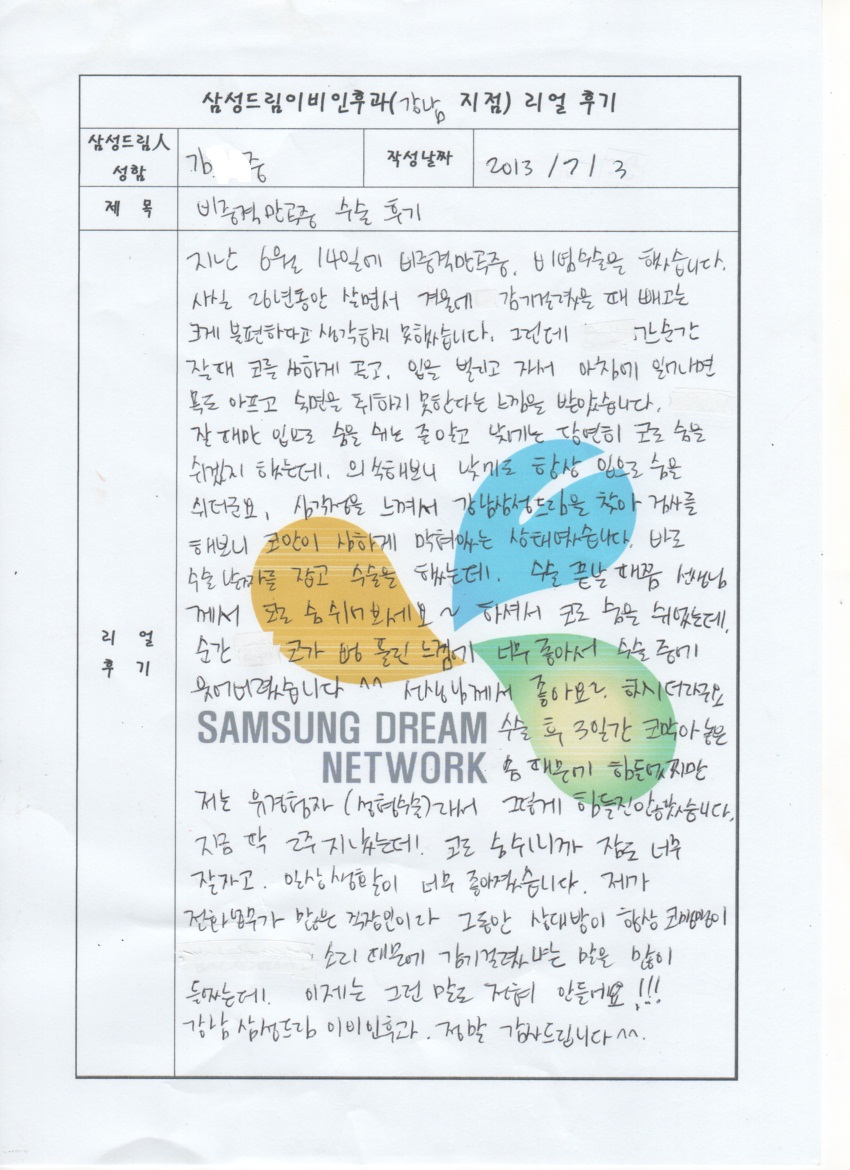 삼성드림이비인후과(강남 지점) 리얼 후기
삼성드림人 성함
김 중
작성날짜
2013 / 7 / 3
제 목
비중격만곡증 수술 후기
리 얼 후 기
지난 6월 14일에 비중격만곡증, 비염수술을 했습니다.
사실 26년동안 살면서 겨울에 감기걸렸을 때 빼고는
크게 불편하다고 생각하지 못했습니다. 그런데 간순간
잘때 코를 심하게 골고, 입을 벌리고 자서 아침에 일어나면
목도 아프고 숙면을 취하지 못한다는 느낌을 받았습니다.
잘 때만 입으로 숨을 쉬는 줄알고 낮에는 당연히 코로 숨을
쉬겠지 했는데, 의식해보니 낮에도 항상 입으로 숨을
쉬더군요, 심각성을 느껴서 강남삼성드림을 찾아 검사를
해보니 코안이 심하게 막혀있는 상태였습니다. 바로
수술 날짜를 잡고 수술을 했는데, 수술 끝날 때쯤 선생님
께서 코로 숨 쉬어보세요~ 하셔서 코로 숨을 쉬었는데,
순간 코가 뻥 뚫린 느낌이 너무 좋아서 수술 중에
웃어버렸습니다 ^^ 선생님께서 좋아요?, 하시더라구요
SAMSUNG DREAM
NETWORK
수술 후 3일간 코막아 놓은
솜 때문에 힘들었지만
저는 유경험자 (성형수술)라서 그렇게 힘들진않았습니다.
지금 딱 2주 지났는데! 코로 숨쉬니까 잠도 너무
잘자고. 일상생활이 너무 좋아졌습니다. 제가
전화업무가 많은 직장인이라 그동안 상대방이 항상 코맹맹이
소리 때문에 감기걸렸냐는 말을 많이
들었는데! 이제는 그런 말도 전혀 안들어요!!!
강남 삼성드림 이비인후과. 정말 감사드립니다^^.